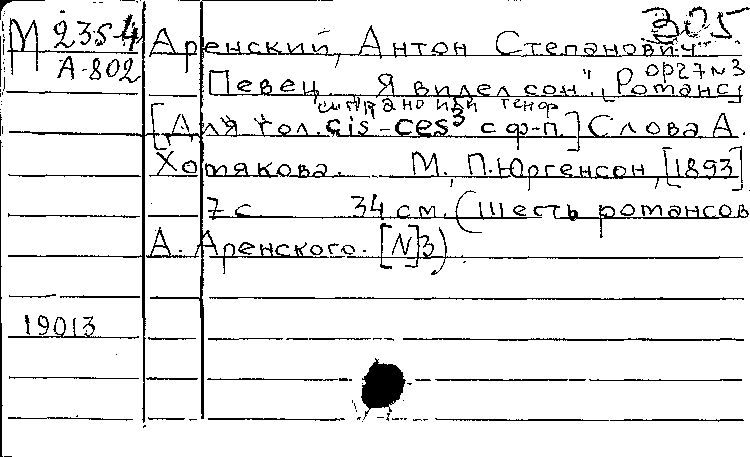 305
М 235-4
А-802
Аренский, Антон Степанович
Певец. "Я видел сон". [Романс]
ор 27 N 3
сопрано или тенор
[Для гол. cis-ces³ с ф-п.] Слова А.
Хомякова. М., П. Юргенсон, [1893]
7 с 34 см. (Шесть романсов
А. Аренского. [N]3)
19013